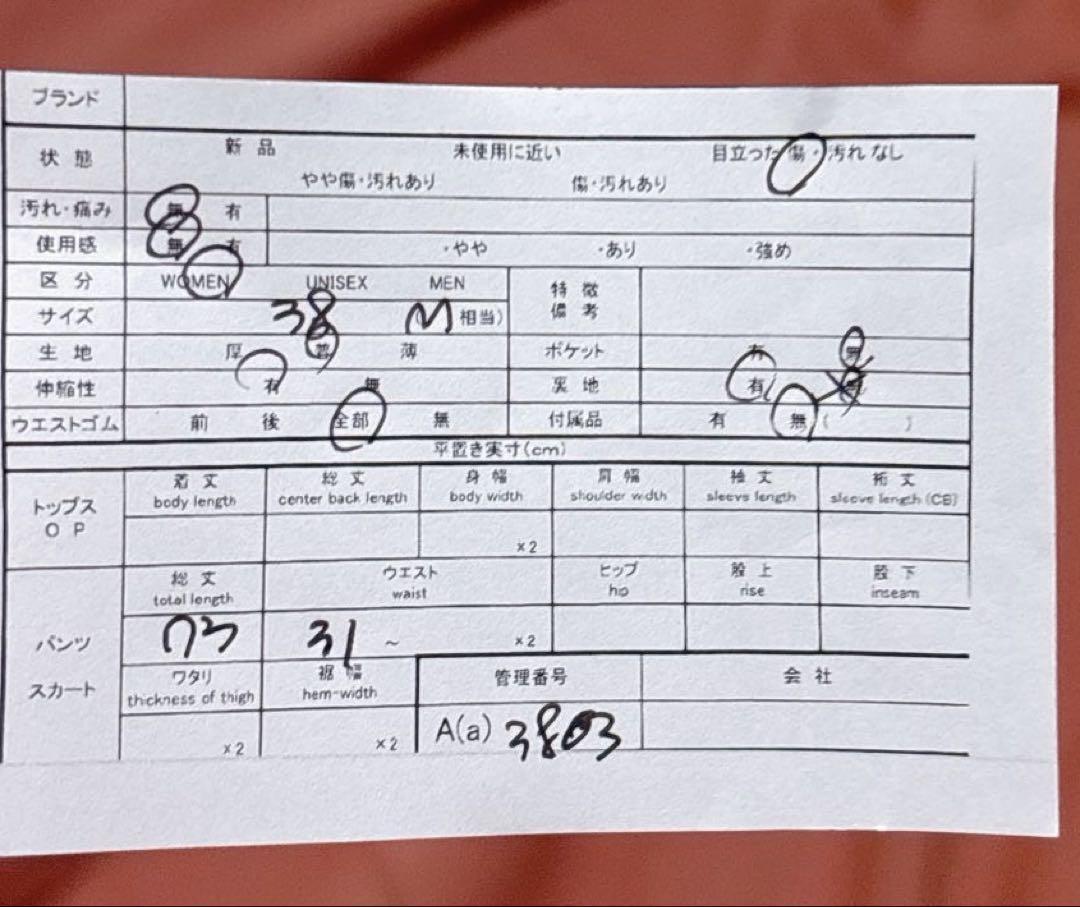 ブランド
状態 新品 未使用に近い 目立った傷・汚れなし
やや傷・汚れあり 傷・汚れあり
汚れ・痛み 無 有
使用感 無 有 ・やや ・あり ・強め
区分 WOMEN UNISEX MEN 特徴
備考
サイズ 38 M 相当)
生地 厚 普 薄 ポケット 有 無
伸縮性 有 無 裏地 有 無
ウエストゴム 前 後 全部 無 付属品 有 無 ( )
平置き実寸(cm)
トップス
OP
着丈 総丈 身幅 肩幅 袖丈 裄丈
body length center back length body width shoulder width sleevs length sleeve length (CB)
×2
総丈 ウエスト ヒップ 股上 股下
total length waist hip rise inseam
パンツ 73 31 ~ ×2
スカート
ワタリ 裾幅 管理番号 会社
thickness of thigh hem-width
×2 ×2 A(a) 3803